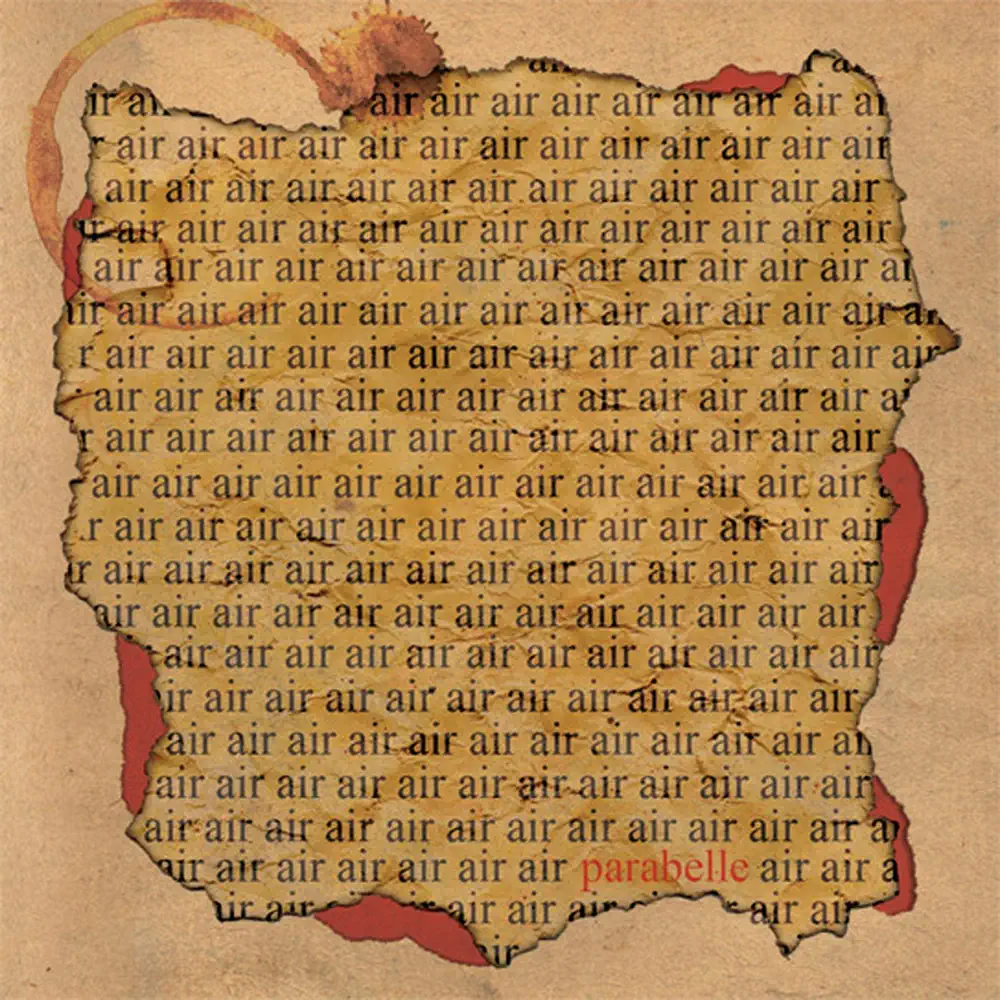 air air air air air air air air ai
r air air air air air air air air air air air air air
air air air air air air air air air air air air air
ir air air air air air air air air air air air air air
air air air air air air air air air air air air air ai
ir air air air air air air air air air air air air air ai
r air air air air air air air air air air air air air air
air air air air air air air air air air air air air a
r air air air air air air air air air air air air air
air air air air air air air air air air air air air a
r air air air air air air air air air air air air air
ir air air air air air air air air air air air air air
air air air air air air air air air air air air air
air air air air air air air air air air air air
ir air air air air air air air air air air air
air air air air air air air air air air air ai
air air air air air air air air air air air air
air air air air air air air air air air air air a
air air air air air air air parabelle air air a
air air air air air